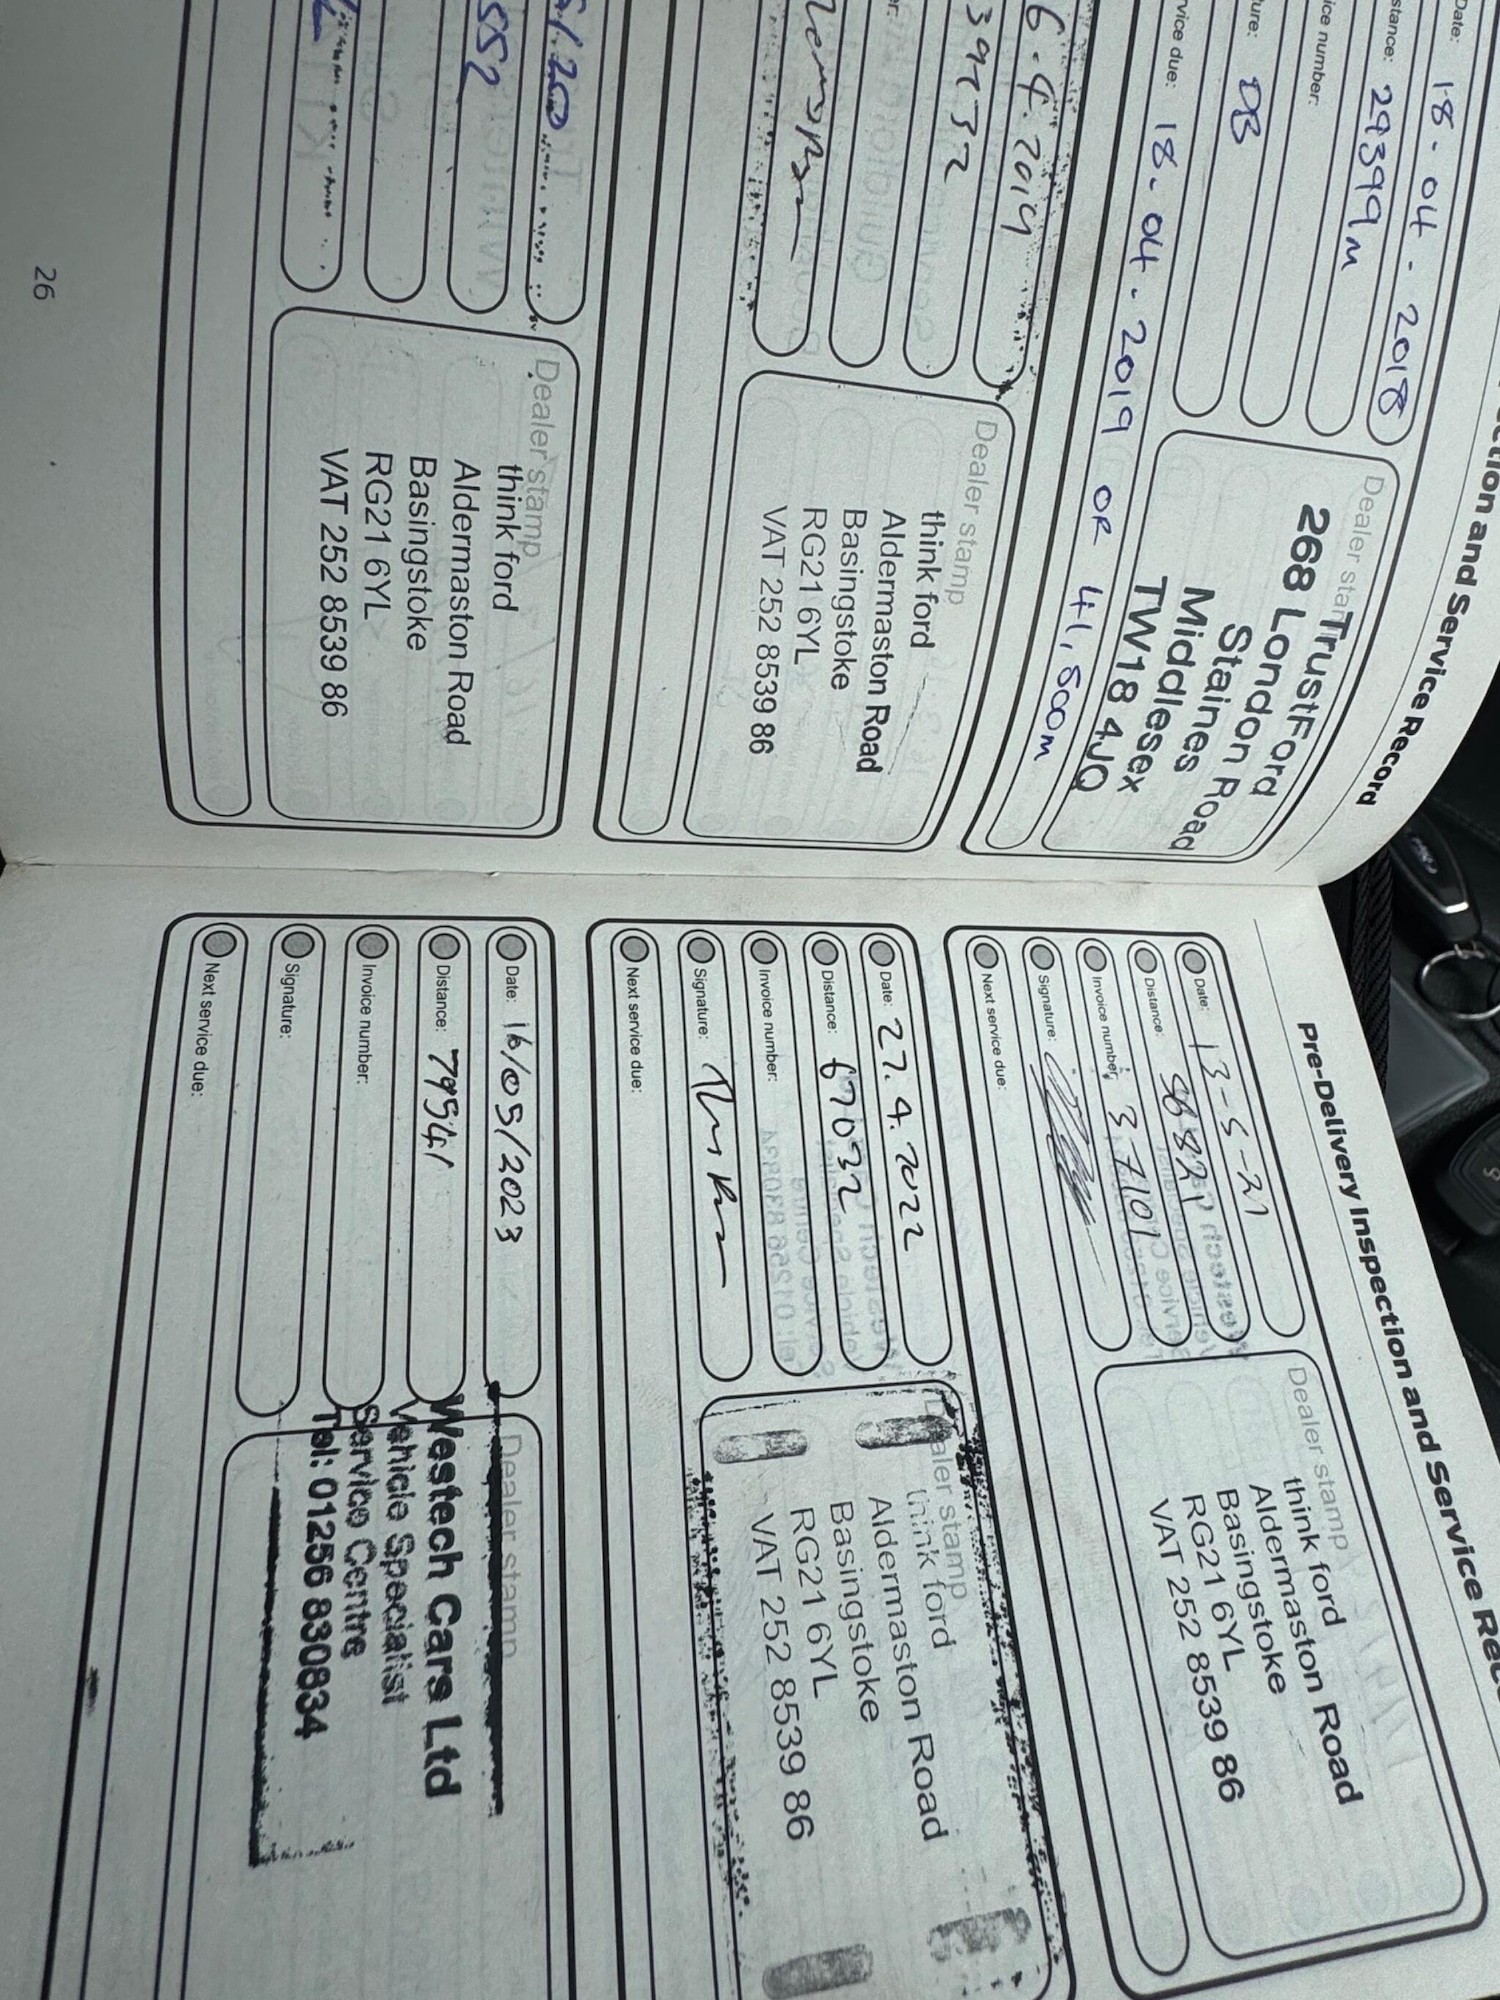 Service Record
Date: 18-04-2018
stance: 29399m
ice number:
ure: DB
rvice due: 18-04-2019 OR 41,500m
Dealer stamp
TrustFord
268 London Road
Staines Road
Middlesex
TW18 4JQ
6.4.2019
Dealer stamp
think ford
Aldermaston Road
Basingstoke
RG21 6YL
VAT 252 8539 86
552
Dealer stamp
think ford
Aldermaston Road
Basingstoke
RG21 6YL
VAT 252 8539 86
26
Pre-Delivery Inspection and Service Rec
Date: 13-5-21
Distance:
Invoice number: 37101
Signature:
Next service due:
Dealer stamp
think ford
Aldermaston Road
Basingstoke
RG21 6YL
VAT 252 8539 86
Date: 27.4.2022
Distance: 67032
Invoice number:
Signature:
Next service due:
Dealer stamp
think ford
Aldermaston Road
Basingstoke
RG21 6YL
VAT 252 8539 86
Date: 16/05/2023
Distance: 79541
Invoice number:
Signature:
Next service due:
Dealer stamp
Westech Cars Ltd
Vehicle Specialist
Service Centre
Tel: 01256 830834